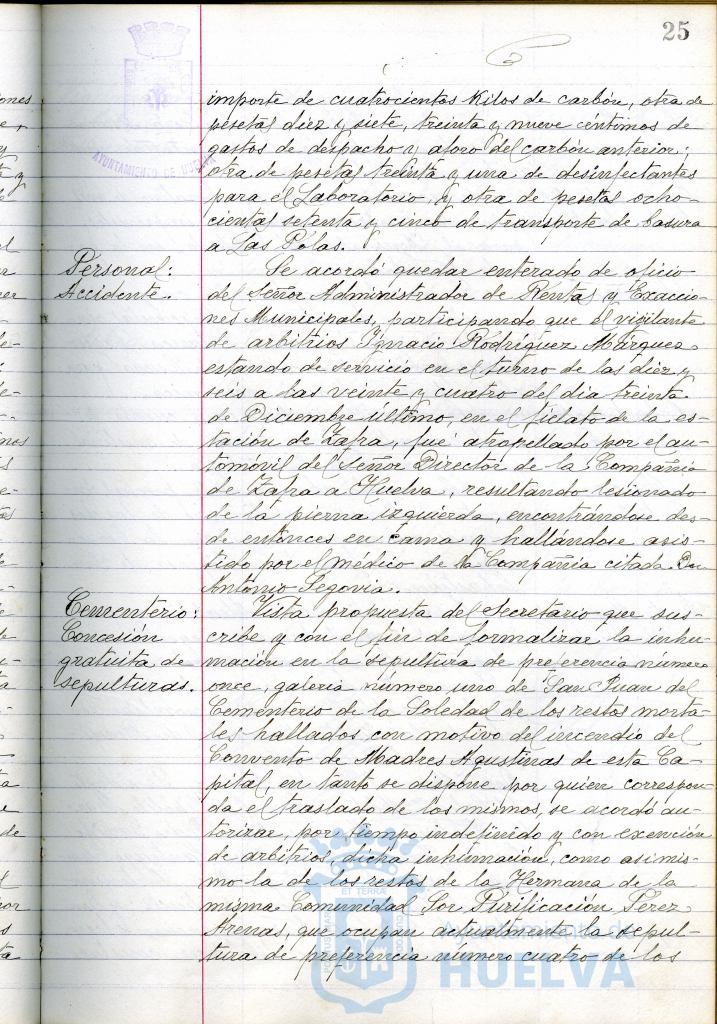 25
AYUNTAMIENTO DE HUELVA
importe de cuatrocientos Kilos de carbón, otra de
pesetas diez y siete, treinta y nueve céntimos de
gastos de despacho y aforo del carbón anterior;
otra de pesetas treinta y una de desinfectantes
para el Laboratorio, y otra de pesetas ocho-
cientas setenta y cinco de transporte de basura
a Las Pólas.
Personal:
Accidente.
Se acordó quedar enterado de oficio
del Señor Administrador de Rentas y Exaccio-
nes Municipales, participando que el vigilante
de arbitrios Ignacio Rodríguez Márquez
estando de servicio en el turno de las diez y
seis a las veinte y cuatro del día treinta
de Diciembre último, en el fielato de la es-
tación de Zafra, fué atropellado por el au-
tomóvil del Señor Director de la Compañía
de Zafra a Huelva, resultando lesionado
de la pierna izquierda, encontrándose des-
de entonces en cama y hallándose asis-
tido por el médico de la Compañía citada Don
Antonio Segovia.
Cementerio:
Concesión
gratuita de
sepulturas.
Vista propuesta del Secretario que sus-
cribe y con el fin de formalizar la inhu-
mación en la sepultura de preferencia número
once, galería número uno de San Juan del
Cementerio de la Soledad de los restos morta-
les hallados con motivo del incendio del
Convento de Madres Agustinas de esta Ca-
pital, en tanto se dispone por quien correspon-
da el traslado de los mismos, se acordó au-
torizar, por tiempo indefinido y con exención
de arbitrios, dicha inhumación, como asimis-
mo la de los restos de la Hermana de la
misma Comunidad Sor Purificación Pérez
Arenas, que ocupan actualmente la sepul-
tura de preferencia número cuatro de los
Ayuntamiento de
HUELVA